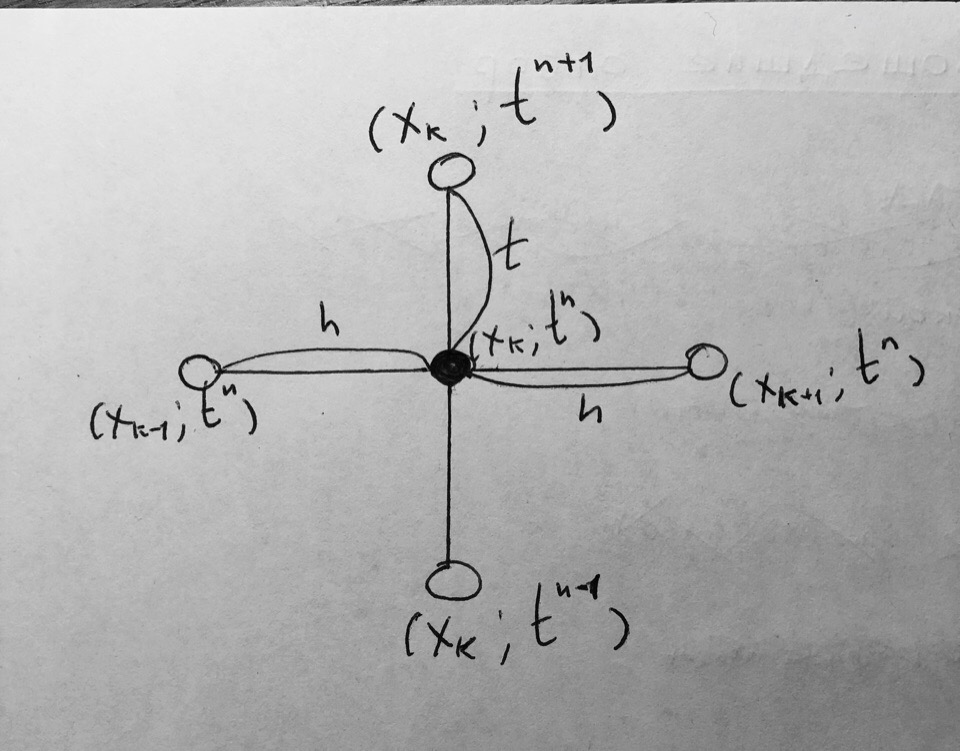 (x_k ; t^{n+1})
t
h
(x_k ; t^n)
(x_{k-1} ; t^n)
(x_{k+1} ; t^n)
h
(x_k ; t^{n-1})